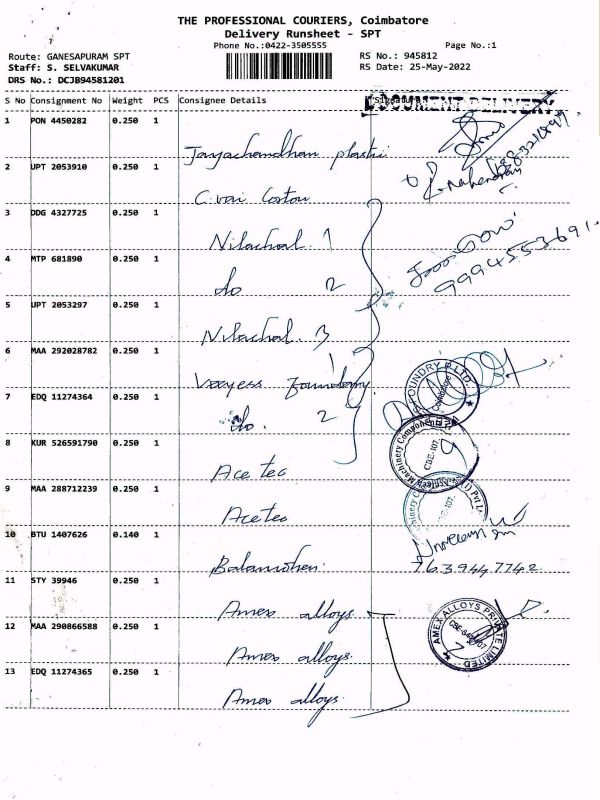 THE PROFESSIONAL COURIERS, Coimbatore
Delivery Runsheet - SPT
Phone No.:0422-3505555
Page No.:1
Route: GANESAPURAM SPT
RS No.: 945812
Staff: S. SELVAKUMAR
RS Date: 25-May-2022
DRS No.: DCJB94581201
S No Consignment No Weight PCS Consignee Details Signature
DOCUMENT DELIVERY
1 PON 4450282 0.250 1
Jayachandhan plastic
2 UPT 2053910 0.250 1
3 DDG 4327725 0.250 1
Nilachal. 1
4 MTP 681890 0.250 1
do 2
9994553691.
5 UPT 2053297 0.250 1
Nilachal. 3
6 MAA 292028782 0.250 1
Foundry 1
7 EDQ 11274364 0.250 1
do. 2
FOUNDRY P LTD.
Coimbatore
8 KUR 526591790 0.250 1
Ace tec
Machinery Components
CBE-107.
9 MAA 288712239 0.250 1
Ace tec
CBE-107.
10 BTU 1407626 0.140 1
Balamohan.
7639447742.
11 STY 39946 0.250 1
Amex alloys.
12 MAA 290866588 0.250 1
Amex alloys.
AMEX ALLOYS PRIVATE LIMITED
13 EDQ 11274365 0.250 1
Amex alloys.